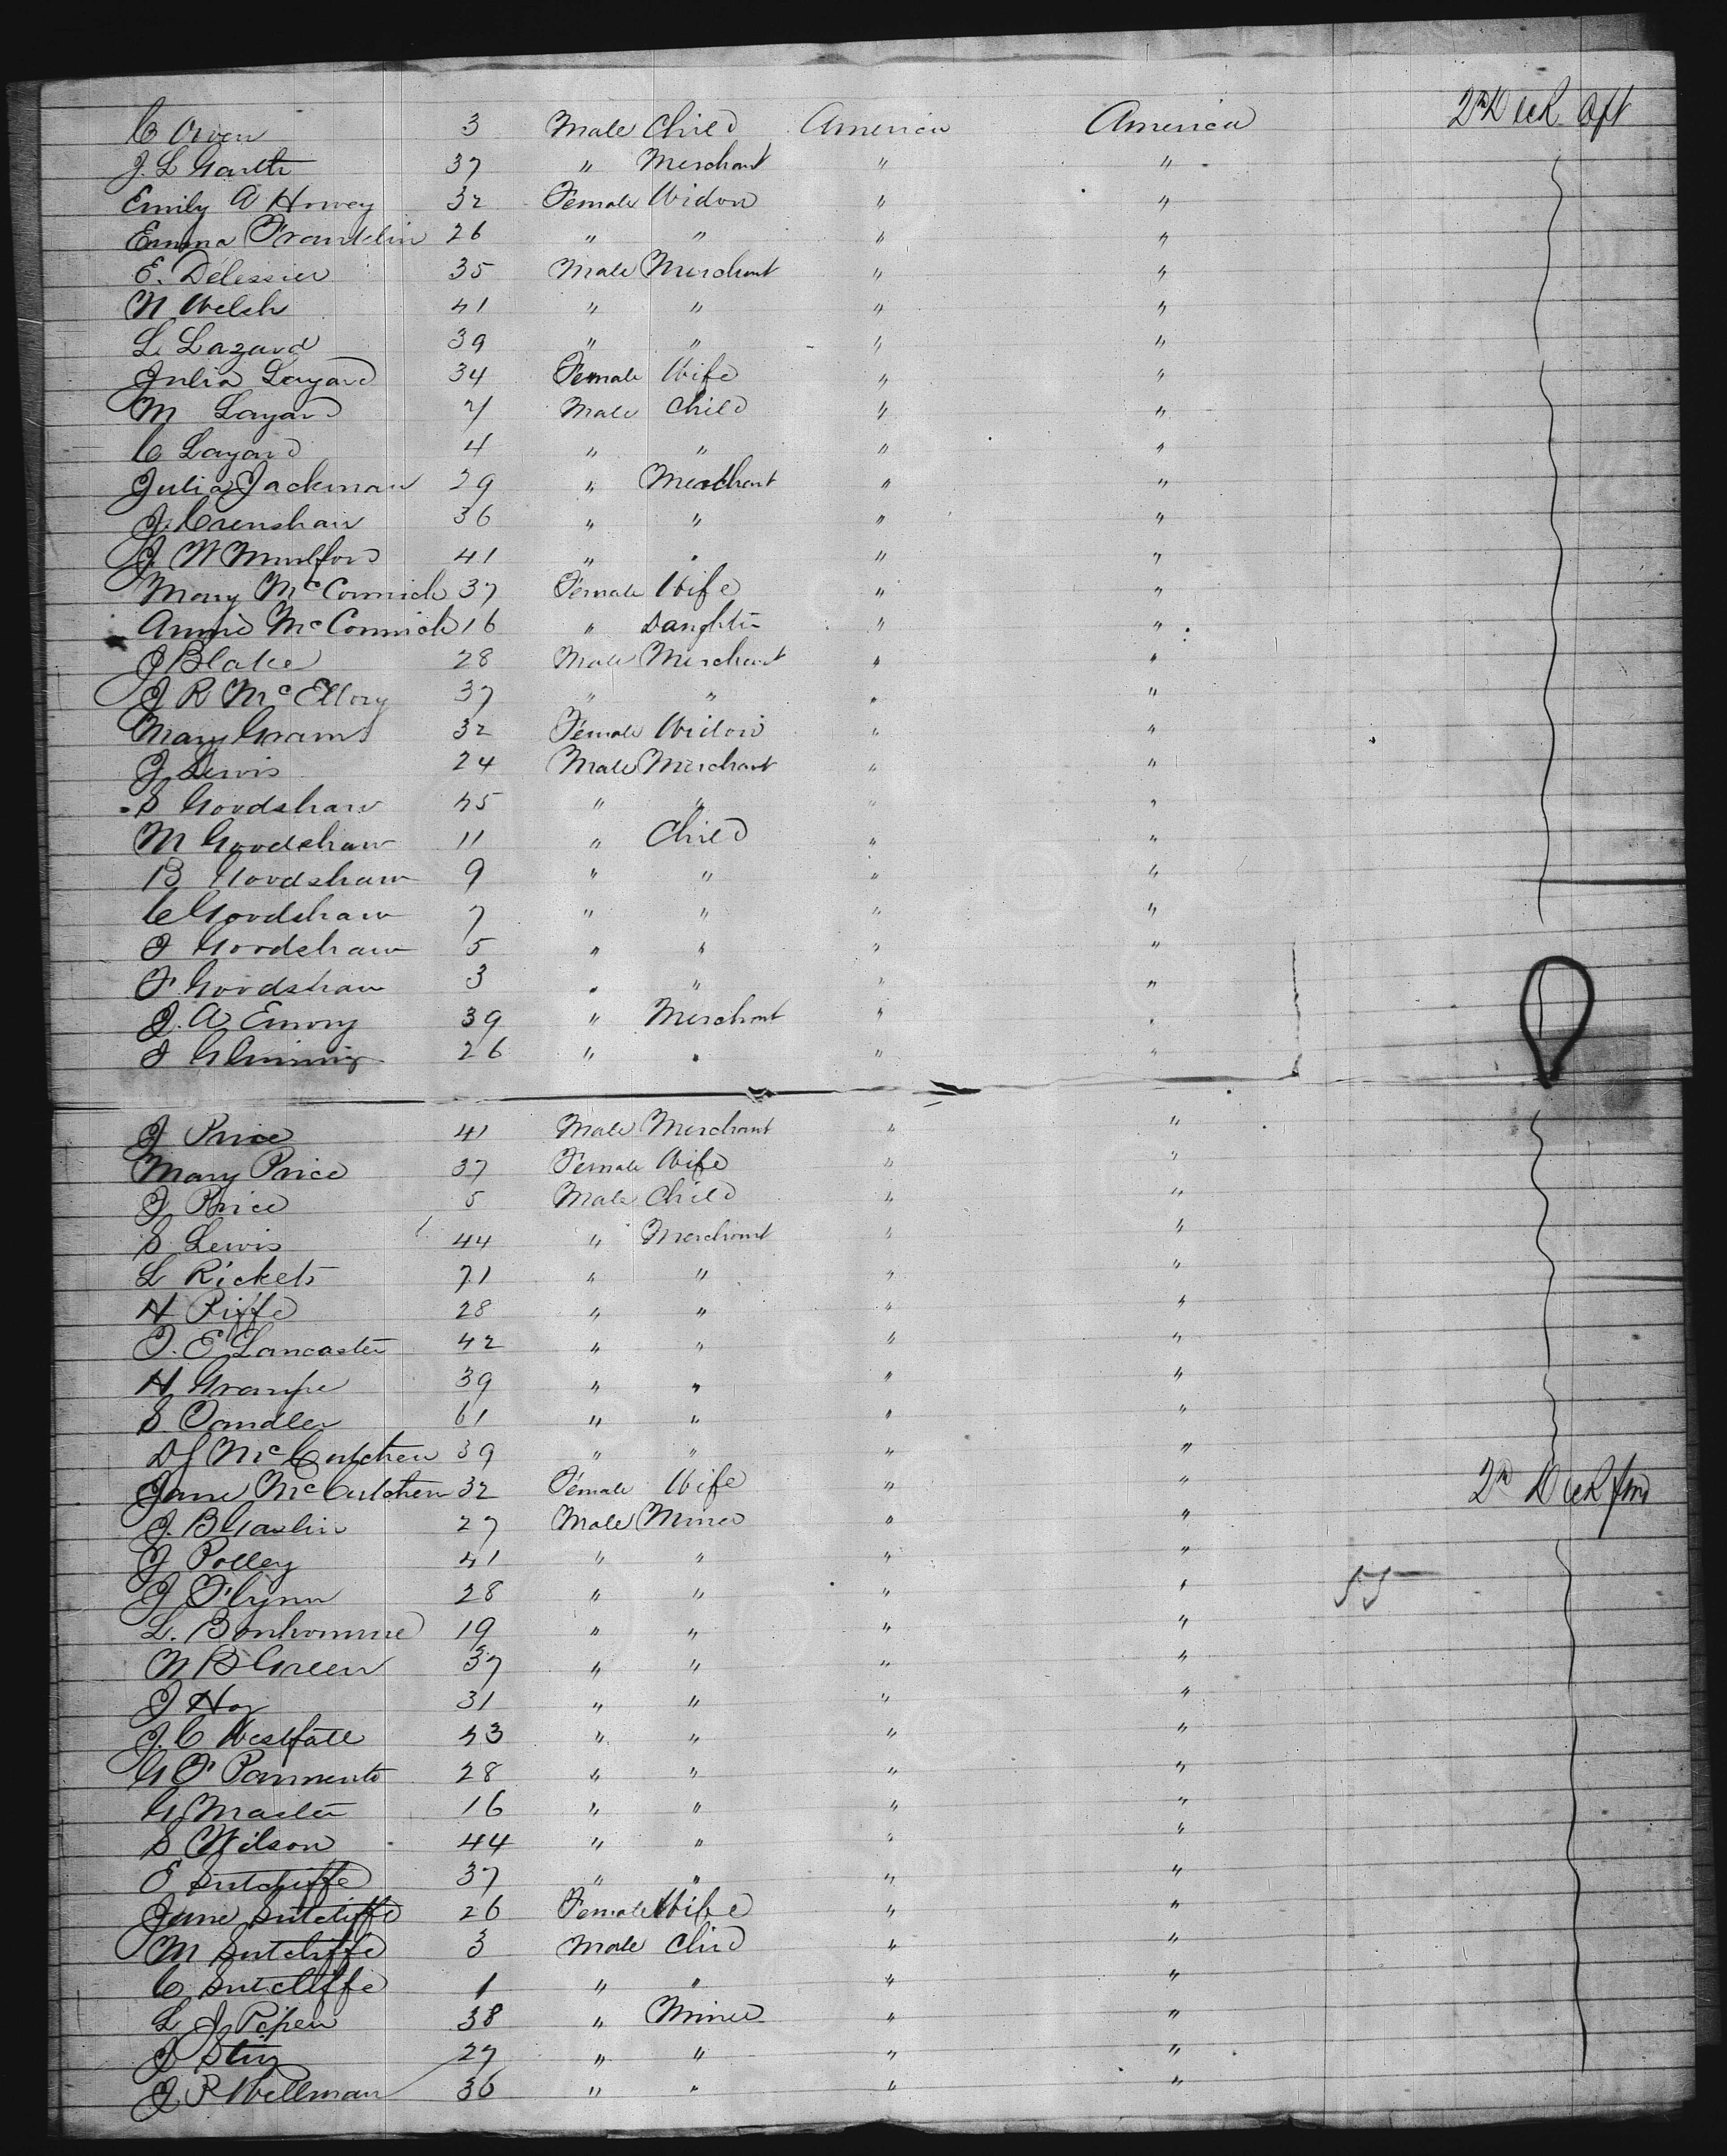 C Owen 3 Male Child America America 2nd Deck Aft
J. L Garth 37 " Merchant " "
Emily A Howey 32 Female Widow " "
Emma Franklin 26 " " " "
E. Delessier 35 Male Merchant " "
N Welsh 41 " " " "
L. Lazard 39 " " " "
Julia Layard 34 Female Wife " "
M Layard 7 Male Child " "
C Layard 4 " " " "
Julia Jackman 29 " Merchant " "
J. Crenshaw 36 " " " "
J W Mulford 41 " " " "
Mary McCormick 37 Female Wife " "
Annie McCormick 16 " Daughter " "
J Blake 28 Male Merchant " "
J R McEllory 37 " " " "
Mary Grams 32 Female Widow " "
J Lewis 24 Male Merchant " "
S Goodshaw 45 " " " "
M Goodshaw 11 " Child " "
B Goodshaw 9 " " " "
C Goodshaw 7 " " " "
J Goodshaw 5 " " " "
F Goodshaw 3 " " " "
J. A Emory 39 " Merchant " "
J 26 " " " "
J Price 41 Male Merchant " "
Mary Price 37 Female Wife " "
J Price 5 Male Child " "
S Lewis 44 " Merchant " "
L Rickets 71 " " " "
H Riffe 28 " " " "
T. E Lancaster 42 " " " "
H Grampe 39 " " " "
S. Candler 61 " " " "
D J McCutchen 39 " " " "
Jane McCutchen 32 Female Wife " " 2nd Deck fwd
J. B Gaslin 27 Male Miner " "
J Polley 41 " " " "
J Flynn 28 " " " " 55
L. Bonhomme 19 " " " "
N B Green 37 " " " "
J Hoy 31 " " " "
J. C Westfall 43 " " " "
G F Parmento 28 " " " "
G Master 16 " " " "
S Wilson 44 " " " "
E Sutcliffe 37 " " " "
Jane Sutcliffe 26 Female Wife " "
M Sutcliffe 3 Male Chid " "
C Sutcliffe 1 " " " "
L J Pepen 38 " Miner " "
J 27 " " " "
J R Wellman 36 " " " "